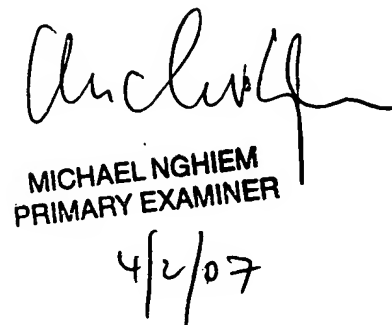 MICHAEL NGHIEM
PRIMARY EXAMINER
4/2/07